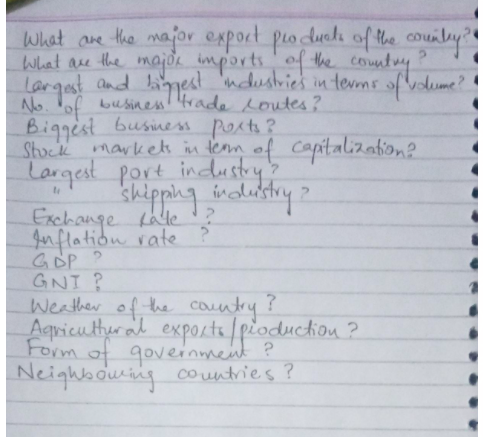 What are the major export products of the country?
What are the major imports of the country?
Largest and biggest industries in terms of volume?
No. of business trade routes?
Biggest business ports?
Stock markets in term of capitalization?
Largest port industry?
" shipping industry?
Exchange rate ?
Inflation rate ?
GDP ?
GNI ?
Weather of the country ?
Agricultural exports/production ?
Form of government ?
Neighbouring countries ?